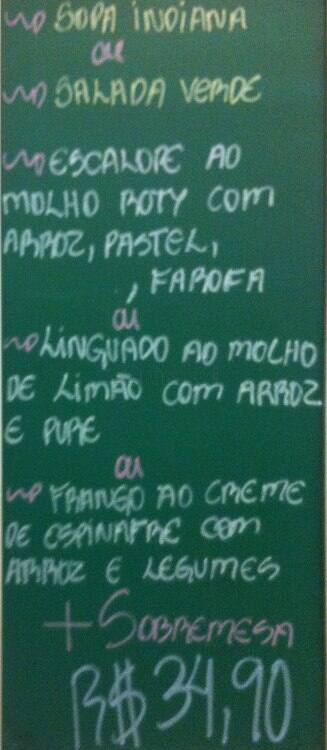 SOPA INDIANA
ou
SALADA VERDE
ESCALOPE AO
MOLHO ROTY COM
ARROZ, PASTEL,
, FAROFA
ou
LINGUADO AO MOLHO
DE LIMÃO COM ARROZ
E PURE
ou
FRANGO AO CREME
DE ESPINAFRE COM
ARROZ E LEGUMES
+ SOBREMESA
R$ 34,90